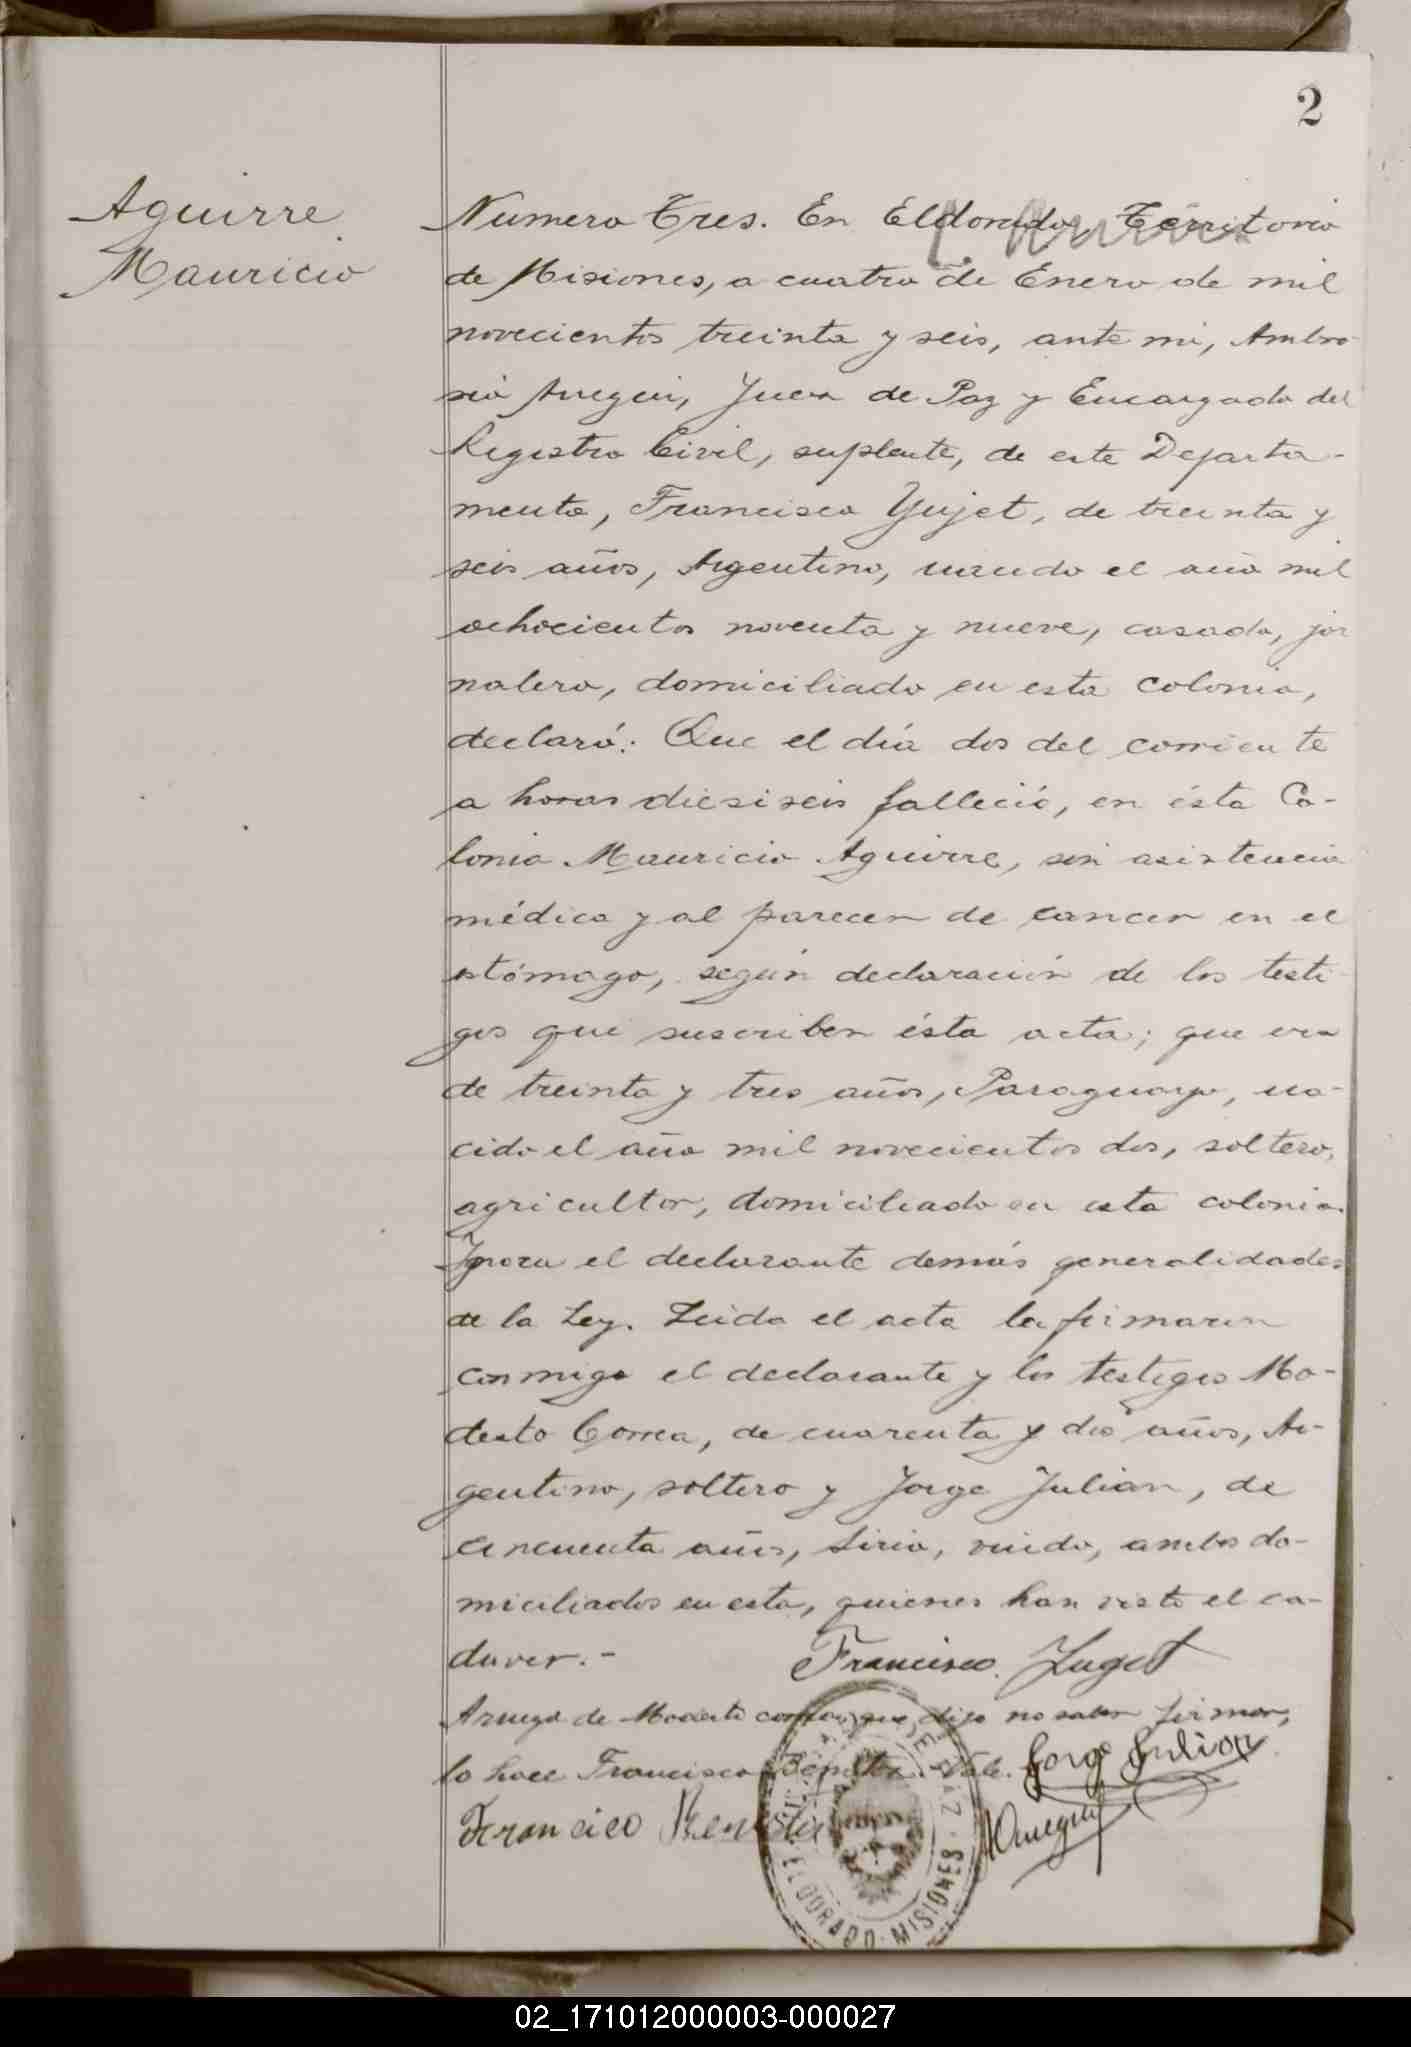 2
Aguirre
Mauricio
Numero Tres. En Eldorado, Territorio
de Misiones, a cuatro de Enero de mil
novecientos treinta y seis, ante mi, Ambro-
sio Aregui, Juez de Paz y Encargado del
Registro Civil, suplente, de este Departa-
mento, Francisco Yujet, de treinta y
seis años, Argentino, nacido el año mil
ochocientos noventa y nueve, casado, jor
nalero, domiciliado en esta colonia,
declaró: Que el día dos del corriente
a horas diesiseis falleció, en ésta Co-
lonia Mauricio Aguirre, sin asistencia
médica y al parecer de cancer en el
estómago, según declaración de los testi-
gos que suscriben ésta acta; que era
de treinta y tres años, Paraguayo, na-
cido el año mil novecientos dos, soltero,
agricultor, domiciliado en esta colonia.
Ignora el declarante demás generalidades
de la Ley. Leida el acta la firmaron
conmigo el declarante y los testigos Mo-
desto Correa, de cuarenta y dos años, Ar-
gentino, soltero y Jorge Julian, de
cincuenta años, Sirio, viudo, ambos do-
miciliados en esta, quienes han visto el ca-
daver.-
Francisco Juget
A ruego de Modesto Correa, que dijo no saber firmar,
lo hace Francisco Benitez. Vale.
Jorge Julian
Francisco Benitez
DE PAZ
ELDORADO - MISIONES
02_171012000003-000027